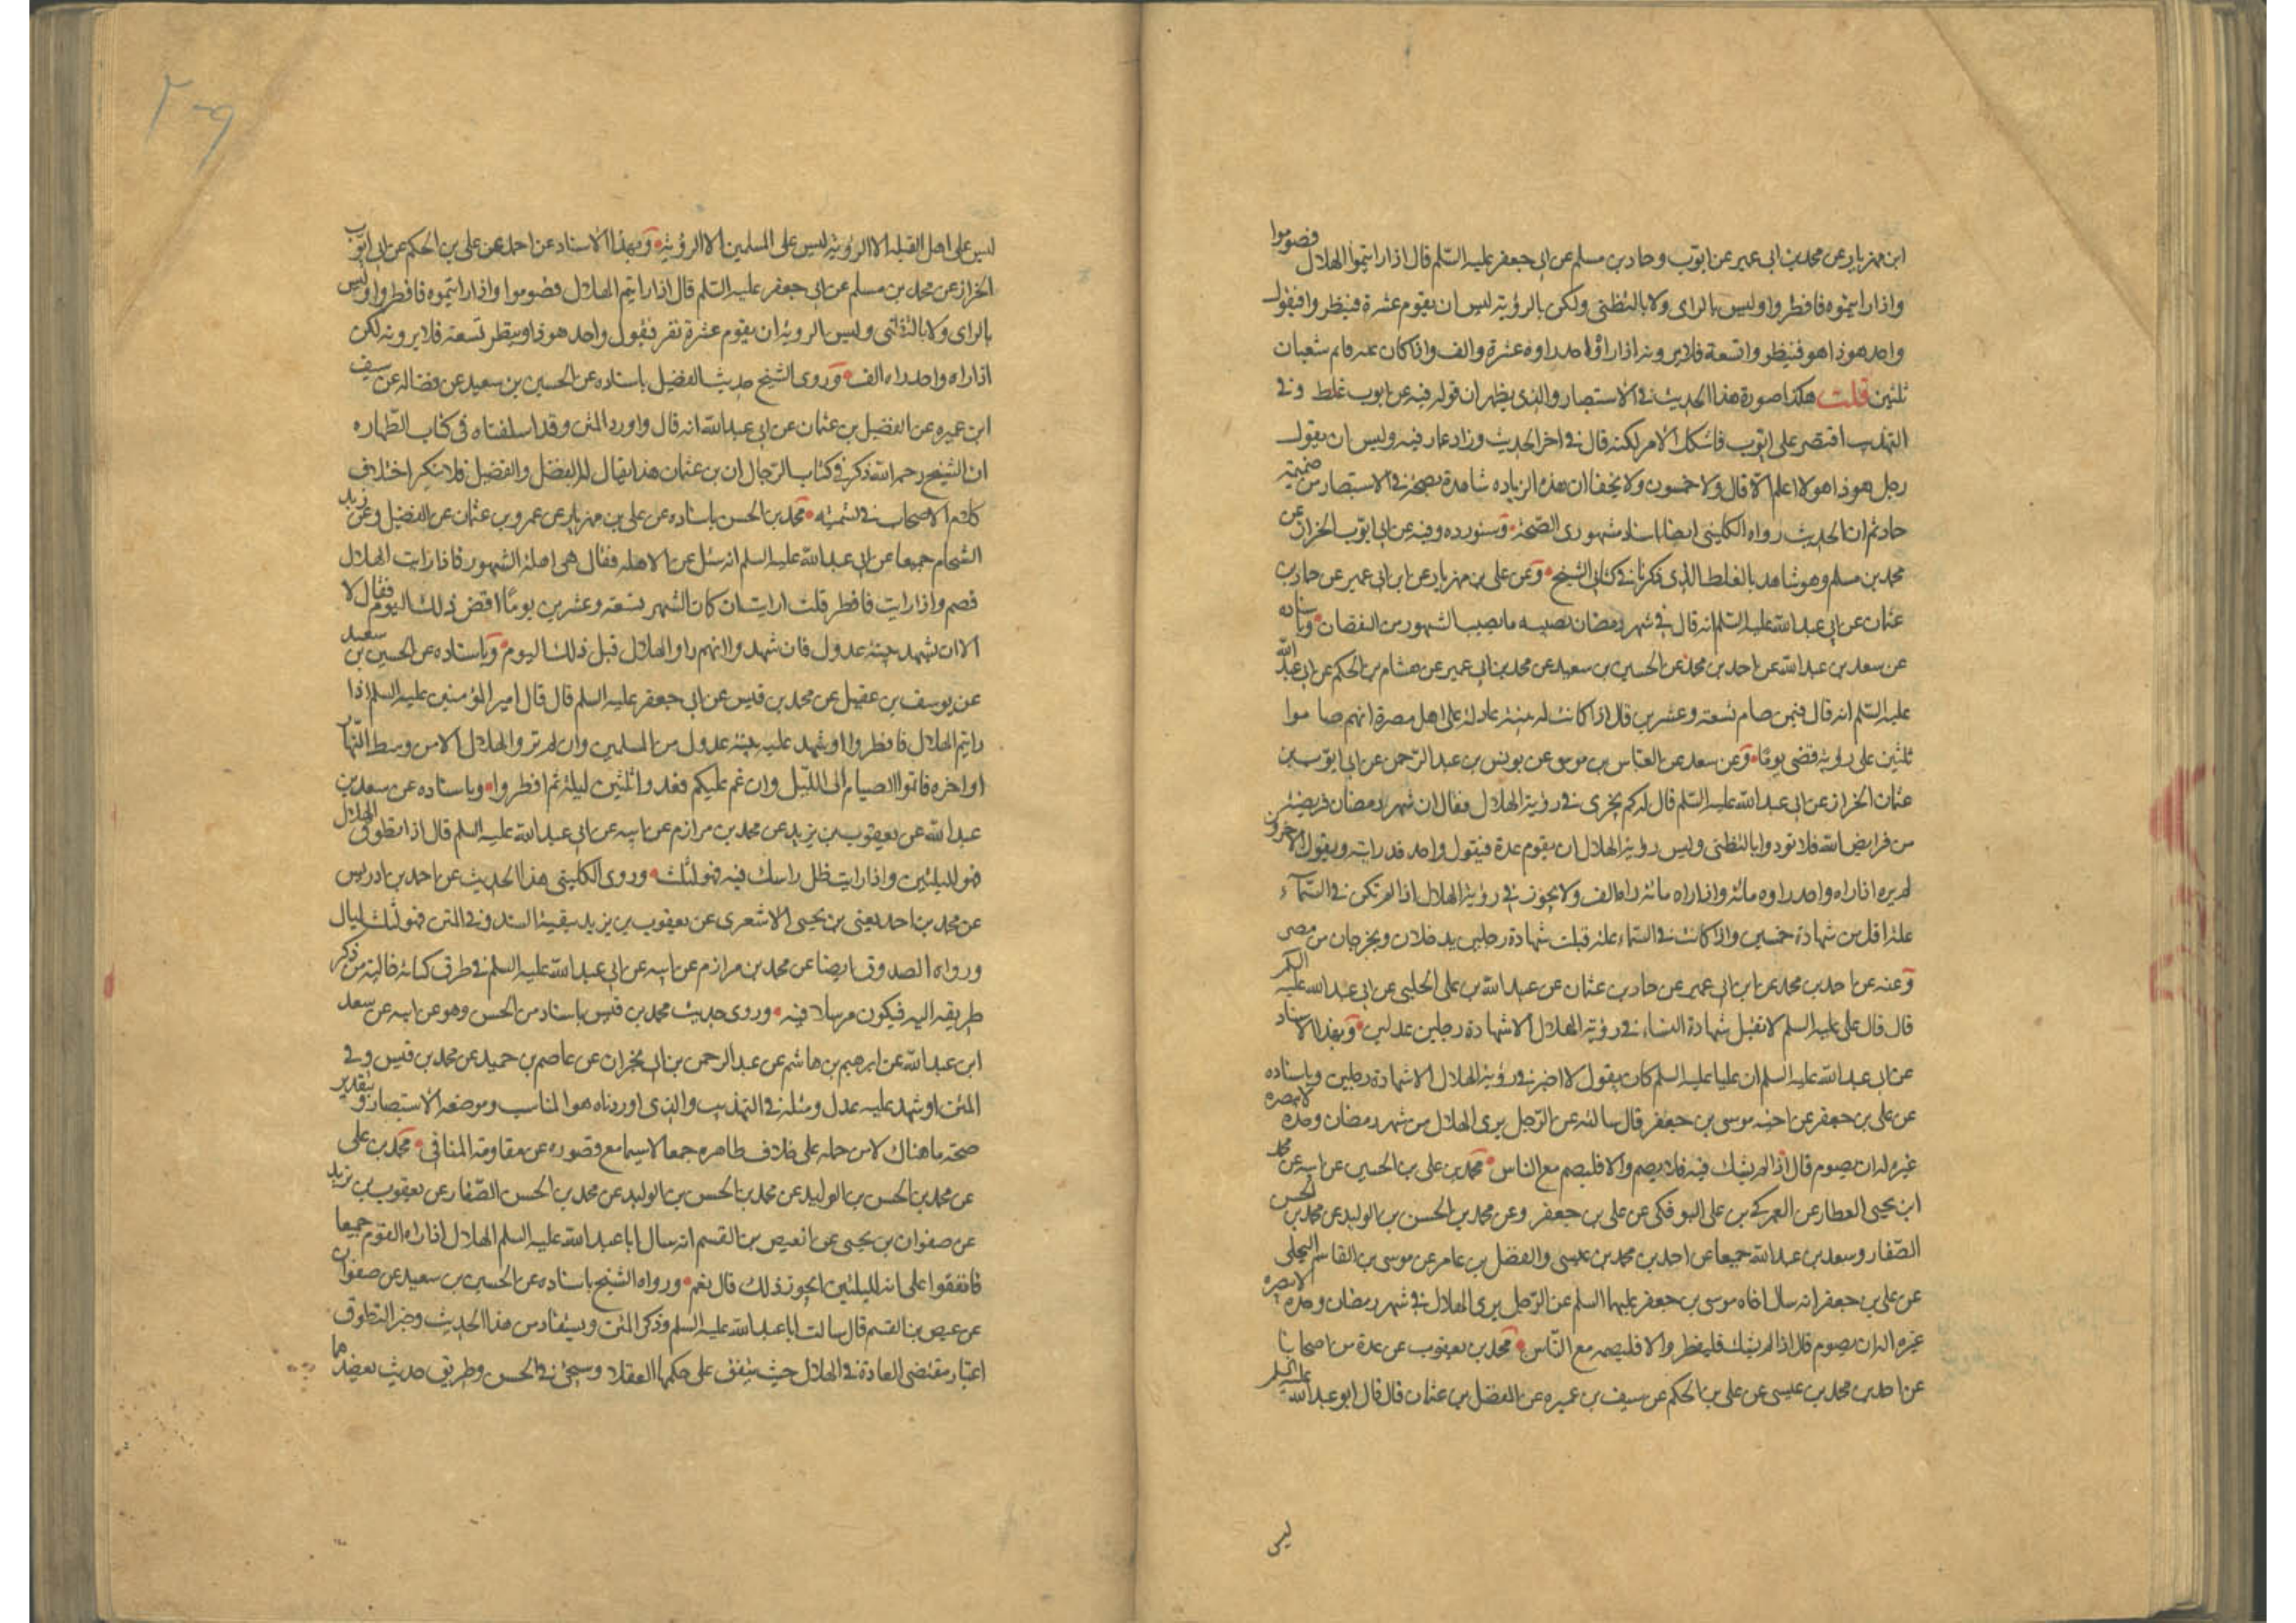 ابن مهزيار عن محمد بن ابى عمير عن ايوب وحماد بن مسلم عن ابى جعفر عليه السّلم قال اذا رايتموا الهلال فصوموا
واذا رايتموه فافطروا وليس بالراى ولا بالتظنى ولكن بالرؤية ليس ان يقوم عشرة فينظروا فيقول
واحد هوذا هو فينظر واتسعة فلا يرونه اذا راه واحد راوه عشرة والف واذا كان علة فاتم شعبان
ثلثين قلت هكذا صورة هذا الحديث فى الاستبصار والذى يظهر ان قوله فيه عن ايوب غلط وفى
التهذيب اقتصر على ايوب فاشكل الامر لكنه قال فى اخر الحديث وزاد حماد فيه وليس ان يقول
رجل هوذا هو لا اعلم الا قال ولا خمسون ولا يخفى ان هذه الزياده شاهدة بصحة فى الاستبصار من ضميمة
حماد ثم ان الحديث رواه الكلينى ايضا باسناد مشهورى الصّحة وسنورده وفيه عن ابى ايّوب الخراز عن
محمد بن مسلم وهو شاهد بالغلط الذى ذكرناه فى كتابى الشيخ وعن على بن مهزيار عن ابن ابى عمير عن حماد بن
عثمان عن ابى عبد الله عليه السّلم انه قال فى شهر رمضان يصيبه ما يصيب الشهور من النقصان وباسناده
عن سعد بن عبد الله عن احمد بن محمد عن الحسين بن سعيد عن محمد بن ابى عمير عن هشام بن الحكم عن ابى عبد الله
عليه السّلم انه قال فيمن صام تسعة وعشرين قال اذا كانت له بينة عادلة على اهل مصر انهم صاموا
ثلثين على رؤية قضى يومًا وعن سعد عن العبّاس بن موسى عن يونس بن عبد الرّحمن عن ابى ايّوب بن
عثمان الخراز عن ابى عبد الله عليه السّلم قال له كم يجزى فى رؤية الهلال فقال ان شهر رمضان فريضة
من فرايض الله فلا تودوا بالتظنى وليس رؤية الهلال ان يقوم عدة فيقول واحد قد رايته ويقول الاخرون
لم نره اذا راه واحد راوه مائة واذا راه مائة راه الف ولا يجوز فى رؤية الهلال اذا لم تكن فى السّمآء
علة اقل من شهادة خمسين واذا كانت فى السّماء علة قبلت شهادة رجلين يدخلان ويخرجان من مصر
وعنه عن احمد بن محمد عن ابن ابى عمير عن حماد بن عثمان عن عبد الله بن على الحلبى عن ابى عبد الله عليه السلم
قال قال على عليه السلم لا تقبل شهادة النساء فى رؤية الهلال الا شهادة رجلين عدلين وبهذا الاسناد
عن ابى عبد الله عليه السلم ان عليا عليه السلم كان يقول لا اجيز فى رؤية الهلال الا شهادة رجلين وباسناده
عن على بن جعفر عن اخيه موسى بن جعفر قال سالته عن الرّجل يرى الهلال من شهر رمضان وحده لا يبصره
غيره له ان يصوم قال اذا لم يشك فيه فليصم والا فليصم مع الناس محمّد بن على بن الحسين عن ابيه عن محمد
ابن يحيى العطار عن العمركى بن على البوفكى عن على بن جعفر وعن محمد بن الحسن بن الوليد عن محمد بن الحسن
الصّفار وسعد بن عبد الله جميعا عن احمد بن محمد بن عيسى والفضل بن عامر عن موسى بن القاسم البجلى
عن على بن جعفر انه سال اخاه موسى بن جعفر عليهما السلم عن الرّجل يرى الهلال فى شهر رمضان وحده لا يبصره
غيره اله ان يصوم قال اذا لم يشك فليفطر والا فليصمه مع النّاس محمّد بن يعقوب عن عدة من اصحابنا
عن احمد بن محمد بن عيسى عن على بن الحكم عن سيف بن عميره عن الفضل بن عثمان قال قال ابو عبد الله عليه السلم
ليس
٢٠٩
ليس على اهل القبلة الا الرؤية ليس على المسلمين الا الرؤية وبهذا الاسناد عن احمد عن على بن الحكم عن ابى ايّوب
الخراز عن محمد بن مسلم عن ابى جعفر عليه السّلم قال اذا رايتم الهلال فصوموا واذا رايتموه فافطروا وليس
بالراى ولا بالتظنى وليس بالرؤية ان يقوم عشرة نفر فيقول واحد هوذا وينظر تسعة فلا يرونه لكن
اذا راه واحد راه الف وروى الشيخ حديث الفضيل باسناده عن الحسين بن سعيد عن فضاله عن سيف
ابن عميره عن الفضيل بن عثمان عن ابى عبد الله انه قال واورد المتن وقد اسلفناه فى كتاب الطّهاره
ان الشيخ رحمه الله ذكر فى كتاب الرّجال ان بن عثمان هذا يقال له الفضل والفضيل فلا ننكر اختلاف
كلام الاصحاب فى تسميته محمّد بن الحسن باسناده عن على بن مهزيار عن عمرو بن عثمان عن المفضل وعن زيد
الشحام جميعا عن ابى عبد الله عليه السلم انه سئل عن الاهلة فقال هى اهلة الشهور فاذا رايت الهلال
فصم واذا رايت فافطر قلت ارايت ان كان الشهر تسعة وعشرين يومًا اقضى ذلك اليوم فقال لا
الا ان يشهد بينة عدول فان شهدوا انهم راوا الهلال قبل ذلك اليوم وباسناده عن الحسين بن سعيد
عن يوسف بن عقيل عن محمد بن قيس عن ابى جعفر عليه السلم قال قال امير المؤمنين عليه السلم اذا
رايتم الهلال فافطروا او شهد عليه بينة عدول من المسلمين وان لم تروا الهلال الا من وسط النّهار
او اخره فاتموا الصيام الى اللّيل وان غم عليكم فعدوا ثلثين ليلة ثم افطروا وباسناده عن سعد بن
عبد الله عن يعقوب بن يزيد عن محمد بن مرازم عن ابيه عن ابى عبد الله عليه السلم قال اذا تطوق الهلال
فهو لليلتين واذا رايت ظل راسك فيه فهو لثلث وروى الكلينى هذا الحديث عن احمد بن ادريس
عن محمد بن احمد يعنى بن يحيى الاشعرى عن يعقوب بن يزيد ببقية السند وفى المتن فهو لثلث ليال
ورواه الصدوق ايضا عن محمد بن مرازم عن ابيه عن ابى عبد الله عليه السلم فى طرق كتابه خالية من ذكر
طريقه اليه فيكون مرسلا فيه وروى حديث محمد بن قيس باسناد من الحسن وهو عن ابيه عن سعد
ابن عبد الله عن ابرهيم بن هاشم عن عبد الرحمن بن ابى نجران عن عاصم بن حميد عن محمد بن قيس وفى
المتن او شهد عليه عدل ومثله فى التهذيب والذى اوردناه هو المناسب وموضعه الاستبصار وبتقدير
صحة ما هناك لابد من حمله على خلاف ظاهره جمعا لا سيما مع قصوره عن مقاومة المنافى محمّد بن على
عن محمد بن الحسن بن الوليد عن محمد بن الحسن بن الوليد عن محمد بن الحسن الصّفار عن يعقوب بن يزيد
عن صفوان بن يحيى عن العيص بن القسم انه سال ابا عبد الله عليه السلم الهلال اذا راه القوم جميعا
فاتفقوا على انه لليلتين ايجوز ذلك قال نعم ورواه الشيخ باسناده عن الحسين بن سعيد عن صفوان
عن عيص بن القسم قال سالت ابا عبد الله عليه السلم وذكر المتن ويستفاد من هذا الحديث وخبر التطوق
اعتبار مقتضى العادة فى الهلال حيث يتفق على حكمها العقلاء وسيجئ فى الحسن وطريق حديث يعضدهما